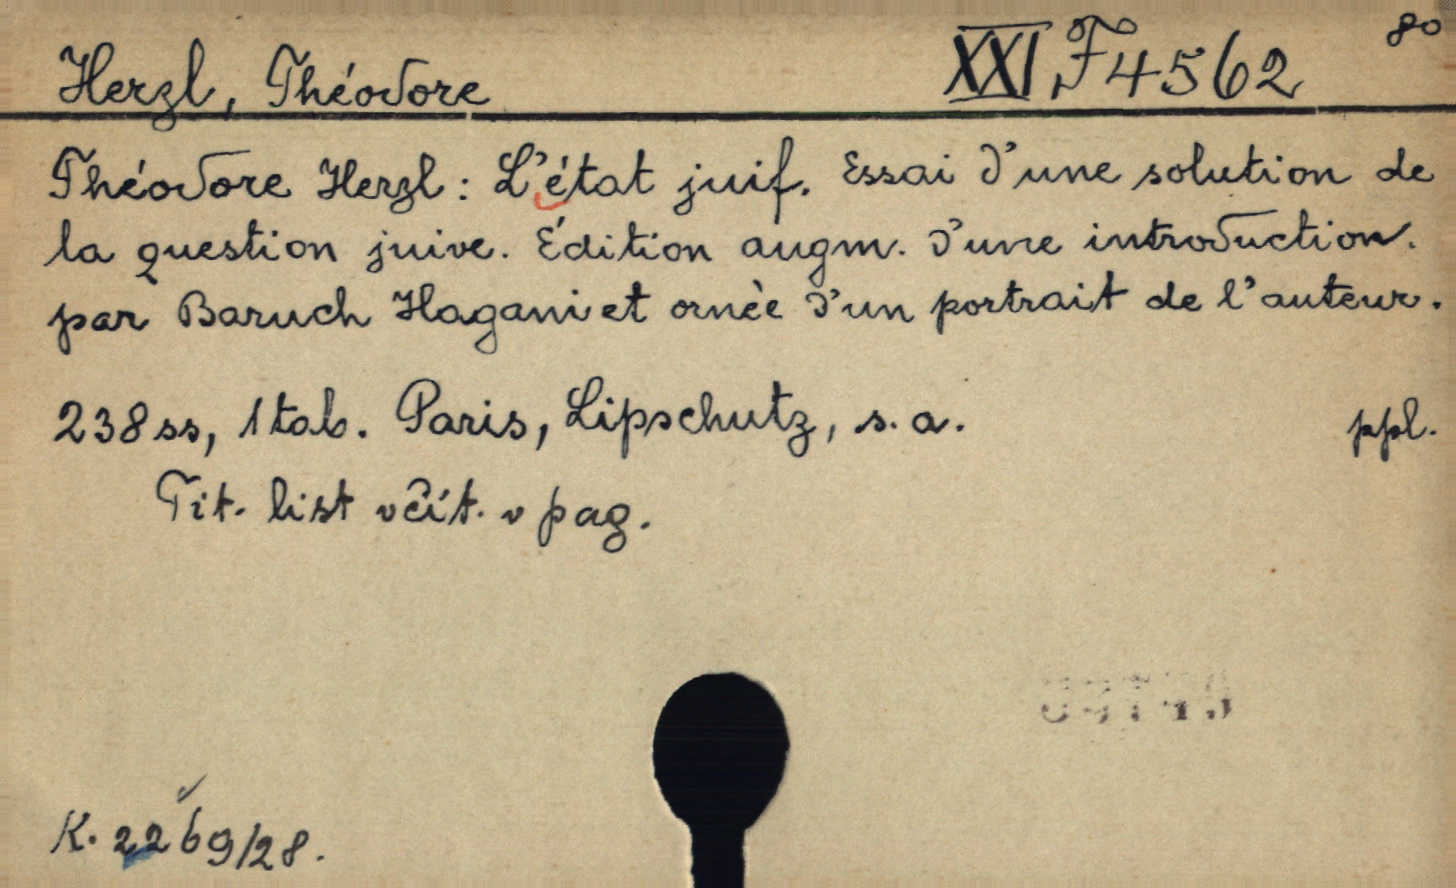 Herzl, Théodore XXI F 4562 8°
Théodore Herzl: L'état juif. Essai d'une solution de
la question juive. Édition augm. d'une introduction.
par Baruch Hagani et ornèe d'un portrait de l'auteur.
238 ss, 1 tab. Paris, Lipschutz, s. a. ppl.
Tit. list včít. v pag.
K. 2269/28.